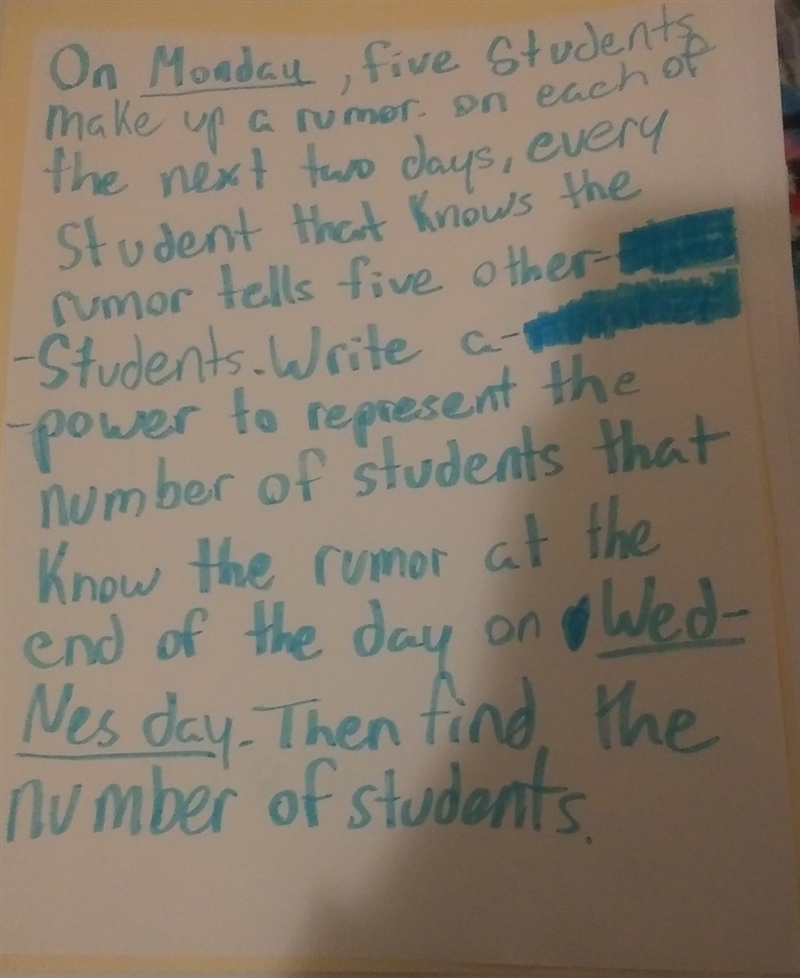 On Monday, five Students
make up a rumor. on each of
the next two days, every
Student that Knows the
rumor tells five other-
-Students. Write a-
-power to represent the
number of students that
Know the rumor at the
end of the day on Wed-
Nes day. Then find the
number of students.